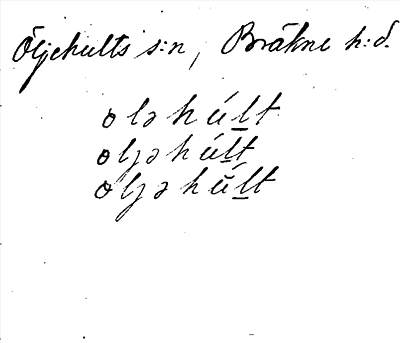 Öljehults s:n, Bräkne h:d.
oləhúlt
oljəhúlt
oljəhúlt